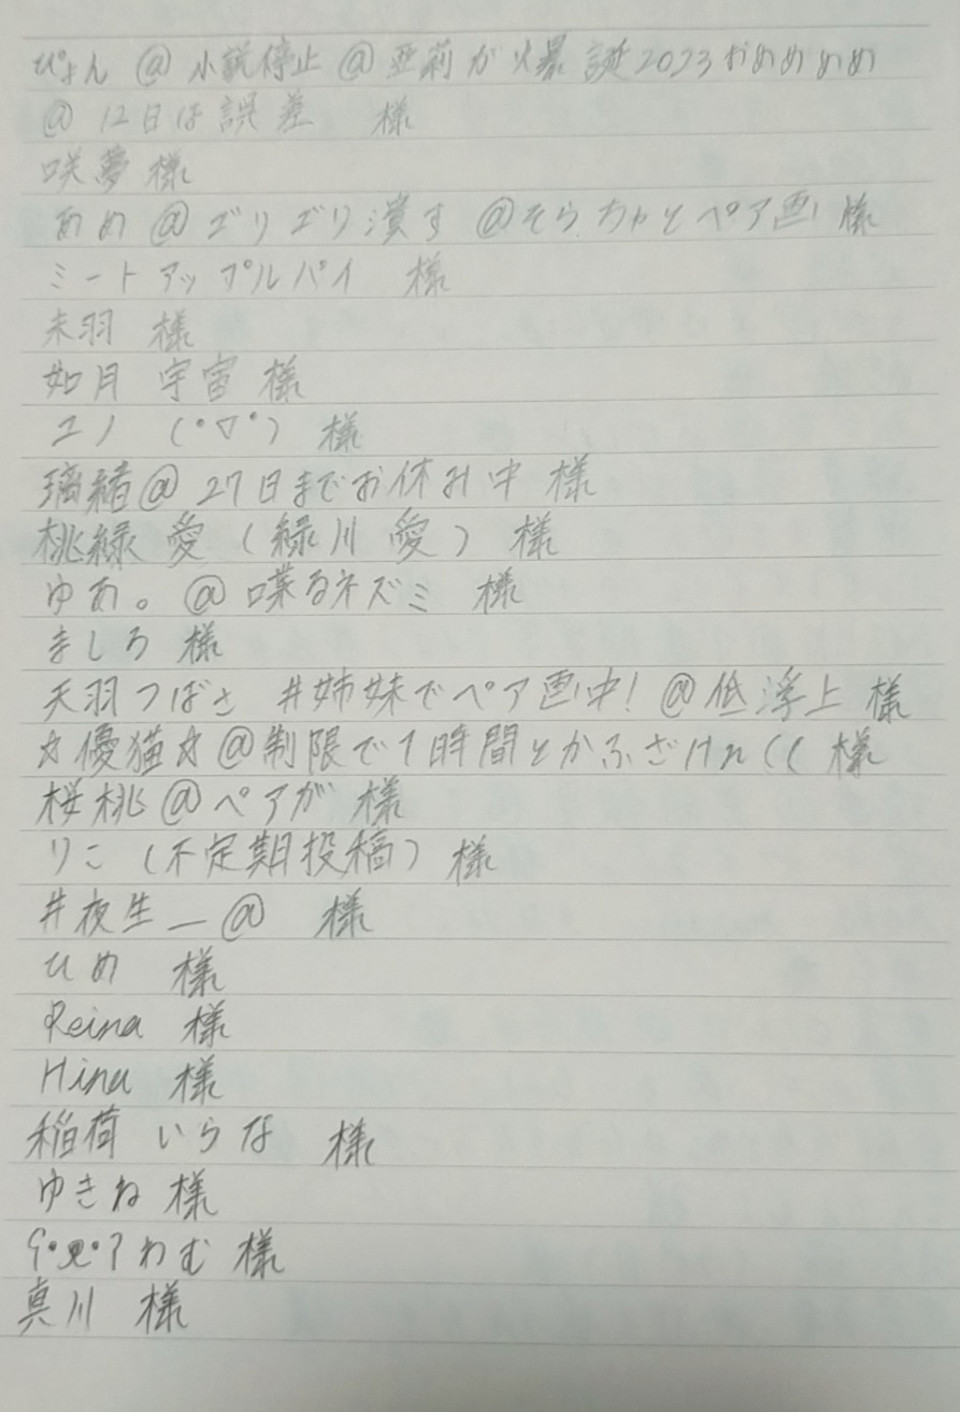 ぴょん @ 小説停止 @ 亜莉が爆誕2023おめめめめ
@ 12日は誤差 様
咲夢 様
あめ @ ゴリゴリ潰す @そらちゃとペア画 様
ミートアップルパイ 様
未羽 様
如月 宇宙 様
ユノ (°▽°) 様
璃緒@ 27日までお休み中 様
桃緑 愛 (緑川 愛) 様
ゆあ。 @ 喋るネズミ 様
ましろ 様
天羽つばさ #姉妹でペア画中! @低浮上 様
☆優猫☆ @制限で1時間とかふざけれ(( 様
桜桃@ペアが 様
りこ (不定期投稿) 様
#夜生_@ 様
ひめ 様
Reina 様
Hina 様
稲荷 いらな 様
ゆきね 様
わむ 様
真川 様